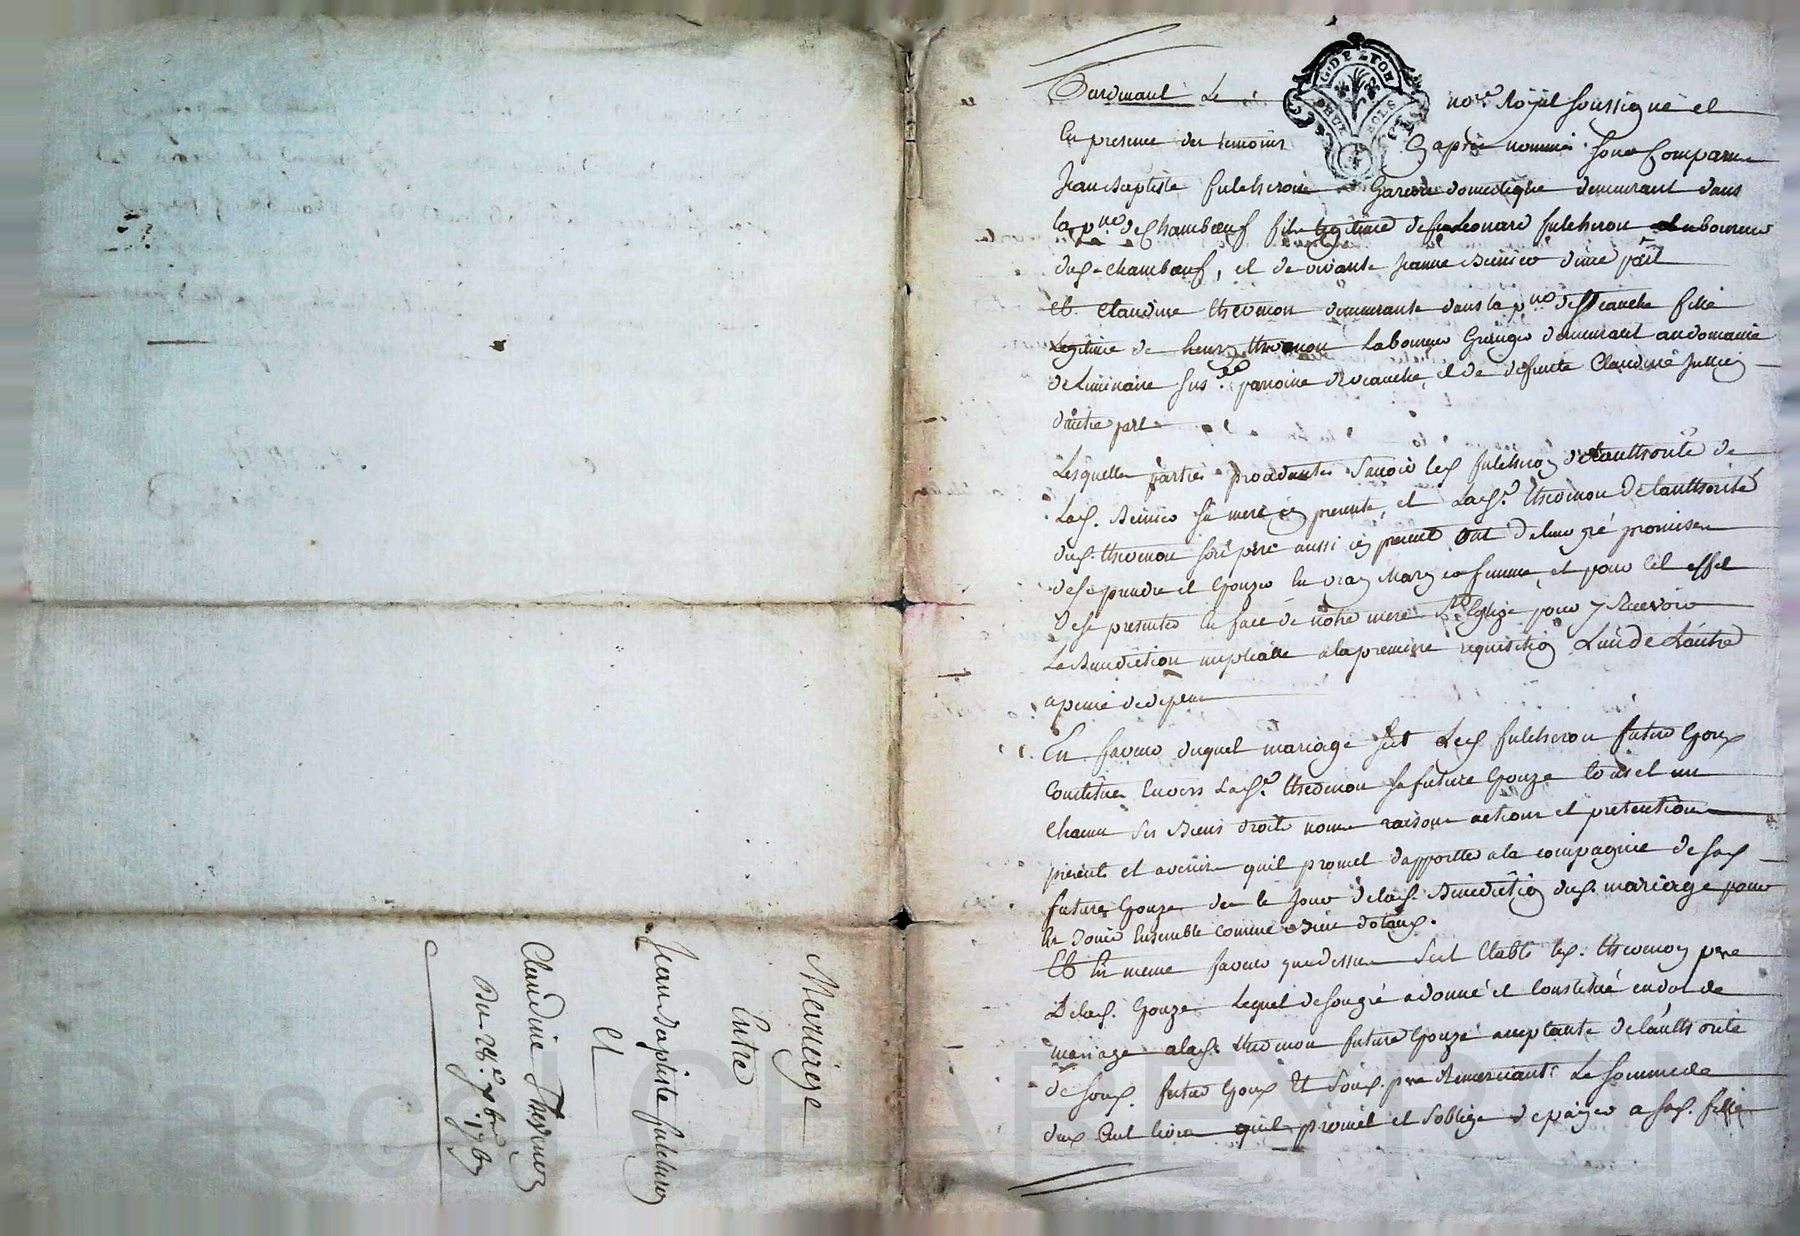 Mariage
Entre
Jean Baptiste fulcheron
Et
Claudine Thevenon
Du 28e 7bre 1767
G. DE LYON
DEUX SOLS
Pardevant Le nore Royal soussigné et
En presence des temoins Cy apres nommés sont Comparus
Jean Baptiste fulcheron Garcon domestique demeurant dans
la pse de Chambœuf fils legitime de feu Leonard fulcheron Laboureur
dud. chambœuf, et de vivante Jeanne d'une part
Et Claudine thevenon demeurante dans la pse de fille
Legitime de henry thevenon Laboureur Granger demeurant au domaine
de sus. paroisse et de deffunte Claudine Jullien
d'autre part
Lesquelles parties procedantes sauoir led. fulcheron de lauthorité de
Lad. sa mere cy presente, et Lad. thevenon de lauthorité
dud. thevenon son pere aussi cy present ont de leur gré promis
de se prendre et Epouzer En vray Mary et femme, et pour cet effet
de se presenter En face de notre mere Ste Eglise pour y Recevoir
La Benediction nuptialle a la premiere requisition L'un de L'autre
a peine de depens
En faveur duquel mariage Led. fulcheron futur Epoux
Constitue Envers Lad. thevenon sa future Epouze tous et un
chacun ses Biens droits noms raisons actions et pretentions
presents et avenirs quil promet d'apporter a la compagnie de sad.
future Epouze des le Jour de lad. Benediction dud. mariage pour
En Jouir Ensemble comme Biens dotaux.
Et En meme faveur que dessus sest Etabli led. thevenon pere
De lad. Epouze Lequel de son gré a donné et Constitué en dot de
mariage a lad. thevenon future Epouze acceptante de lauthorité
de sond. futur Epoux Et dud. pere Remerciant La somme de
deux Cent livres quil promet et soblige de payer a sad. fille
Pascal CHAREYRON